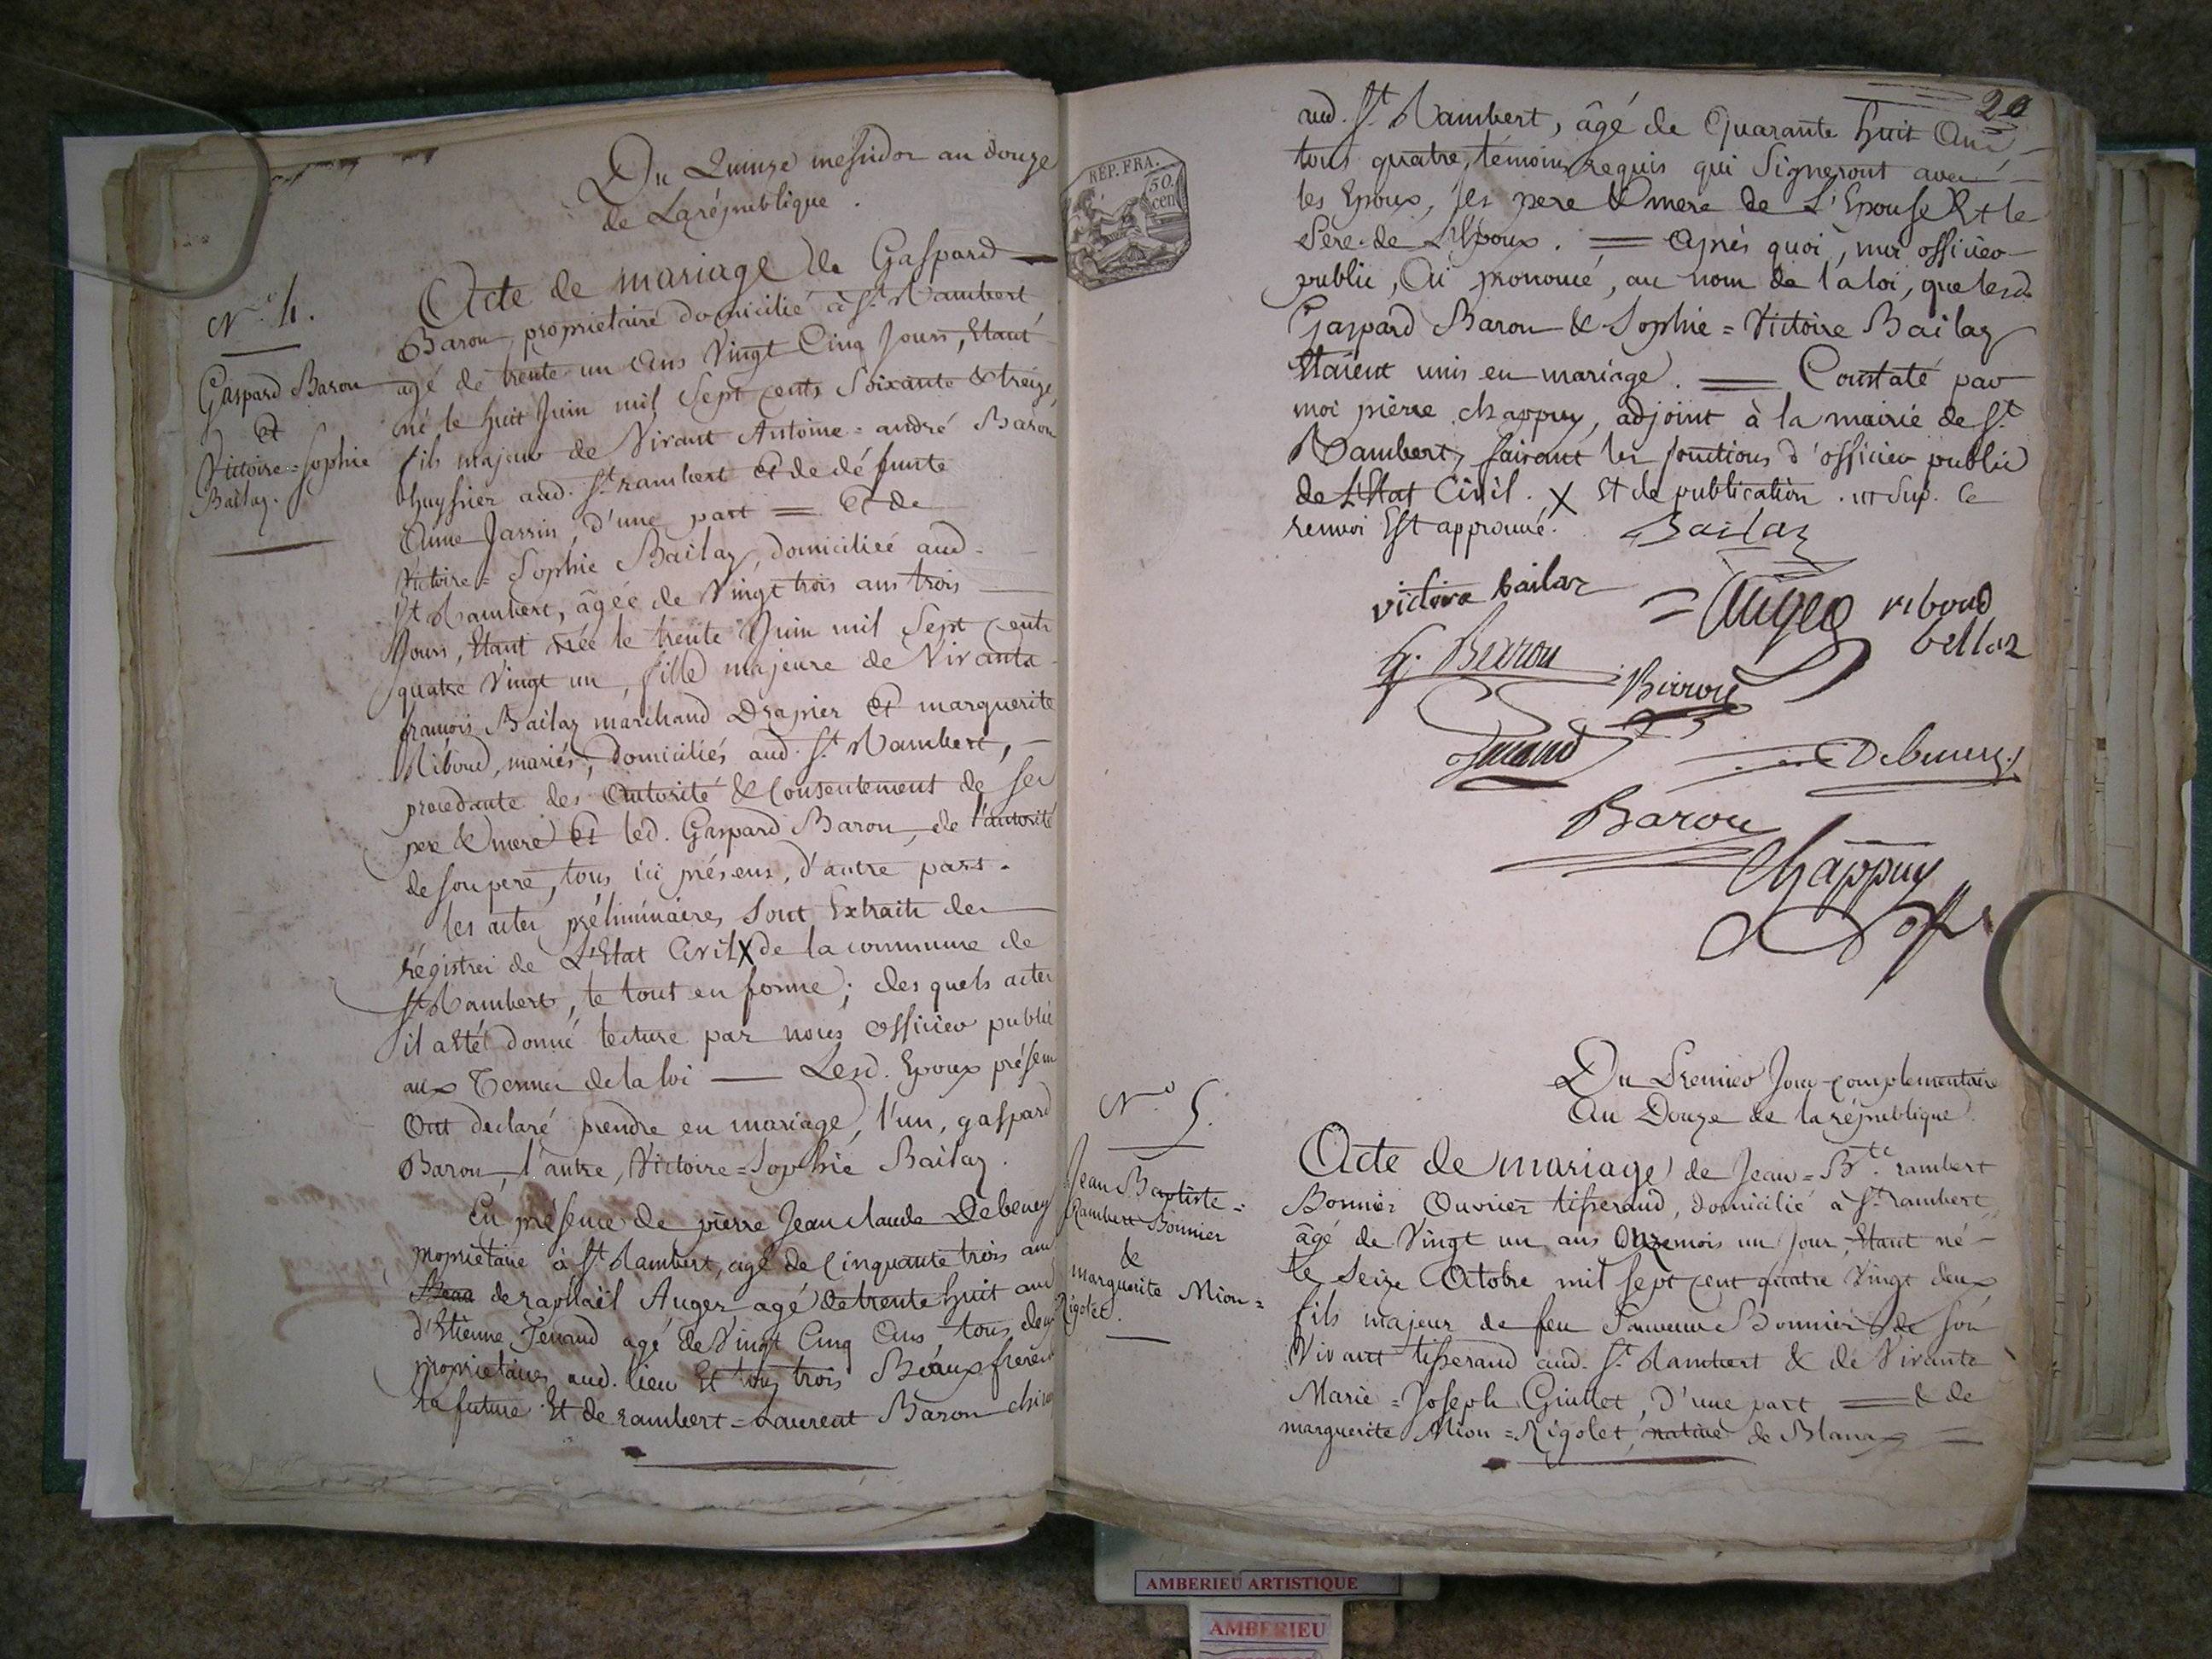 Du Quinze messidor an douze
de Larépublique.
N.o 4.
Gaspard Baron
et
Victoire=Sophie
Bailaz.
Acte de mariage de Gaspard
Baron, proprietaire domicilié à St. Rambert
agé de trente un ans Vingt Cinq Jours, Etant
né le huit Juin mil Sept Cents Soixante & treize,
fils majeur de Vivant Antoine=andré Baron
huyssier aud. St. rambert et de défunte
Anne Jarrin, d'une part = et de
Victoire=Sophie Bailaz, domiciliée aud.
St. Rambert, âgée de Vingt trois ans trois
Jours, Etant née le trente Juin mil Sept Cents
quatre Vingt un, fille majeure de Vivants
françois Bailaz marchand Drapier et marguerite
Riboud, mariés, domiciliés aud. St. Rambert,
procedante des Autorité & Consentement de ses
pere & mere et led. Gaspard Baron, de l'autorité
de son pere, tous ici présens, d'autre part.
les actes préliminaires Sont Extraits des
régistres de L'Etat Civil X de la commune de
St. Rambert, le tout en forme; des quels actes
il a été donné lecture par nous officier public
aux Termes de la loi — Lesd. Epoux présens
Ont declaré prendre en mariage, l'un, gaspard
Baron, l'autre, Victoire=Sophie Bailaz.
En présence de pierre Jean claude Debeney
proprietaire à St. Rambert, agé de Cinquante trois ans
de raphaël Auger agé de trente huit ans
d'Etienne Tenand agé de Vingt Cinq Ans, tous deux
proprietaires aud. lieu Et tous trois Beaux freres
la future. Et de rambert=Laurent Baron chirur
REP. FRA.
50.
cen
20
aud. St. Rambert, âgé de Quarante huit Ans,
tous quatre, témoins requis qui Signeront avec
les Epoux, les pere & mere de L'Epouse & le
Pere de L'Epoux. = Après quoi, moi officier
public, Ai prononcé, au nom de la loi, que lesd.
Gaspard Baron & Sophie=Victoire Bailaz
Etaient unis en mariage. = Constaté par
moi pierre chappuy, adjoint à la mairie de St.
Rambert, faisant les fonctions d'officier public
de L'Etat Civil. X Et de publication. ut Sup. Ce
renvoi Est approuvé. Bailaz
victoire bailaz
Auger riboud
bellaz
G. Barron
Barron
Tenand
Debeney
Baron
Chappuy
Du Premier Jour complementaire
An Douze de la république.
N.o 5.
Jean Baptiste=
Rambert Bonnier
&
marguerite Mion=
Rigolet.
Acte de mariage de Jean=Bte. rambert
Bonnier Ouvrier tisserand, domicilié à St. rambert,
âgé de Vingt un ans Onze mois un Jour, Etant né
le Seize Octobre mil sept cent quatre Vingt deux,
fils majeur de feu Bonnier de son
Vivant tisserand aud. St. Rambert & de Vivante
Marie=Joseph Giullet, D'une part = & de
marguerite Mion=Rigolet, native de Blanaz
AMBERIEU ARTISTIQUE
AMBERIEU